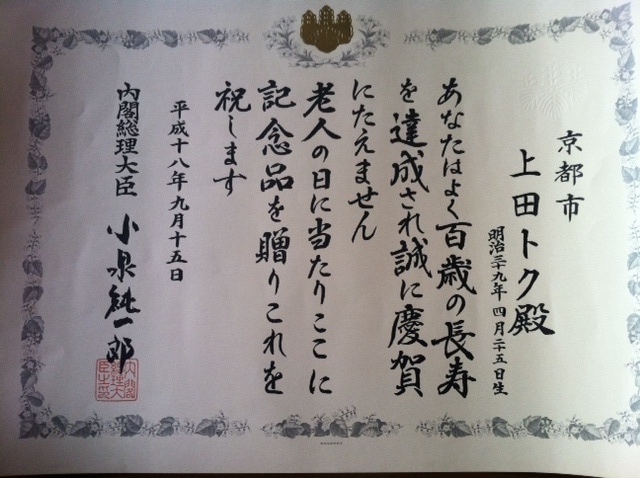 京都市
上田トク殿
明治三十九年四月二十五日生
あなたはよく百歳の長寿
を達成され誠に慶賀
にたえません
老人の日に当たりここに
記念品を贈りこれを
祝します
平成十八年九月十五日
内閣総理大臣 小泉純一郎